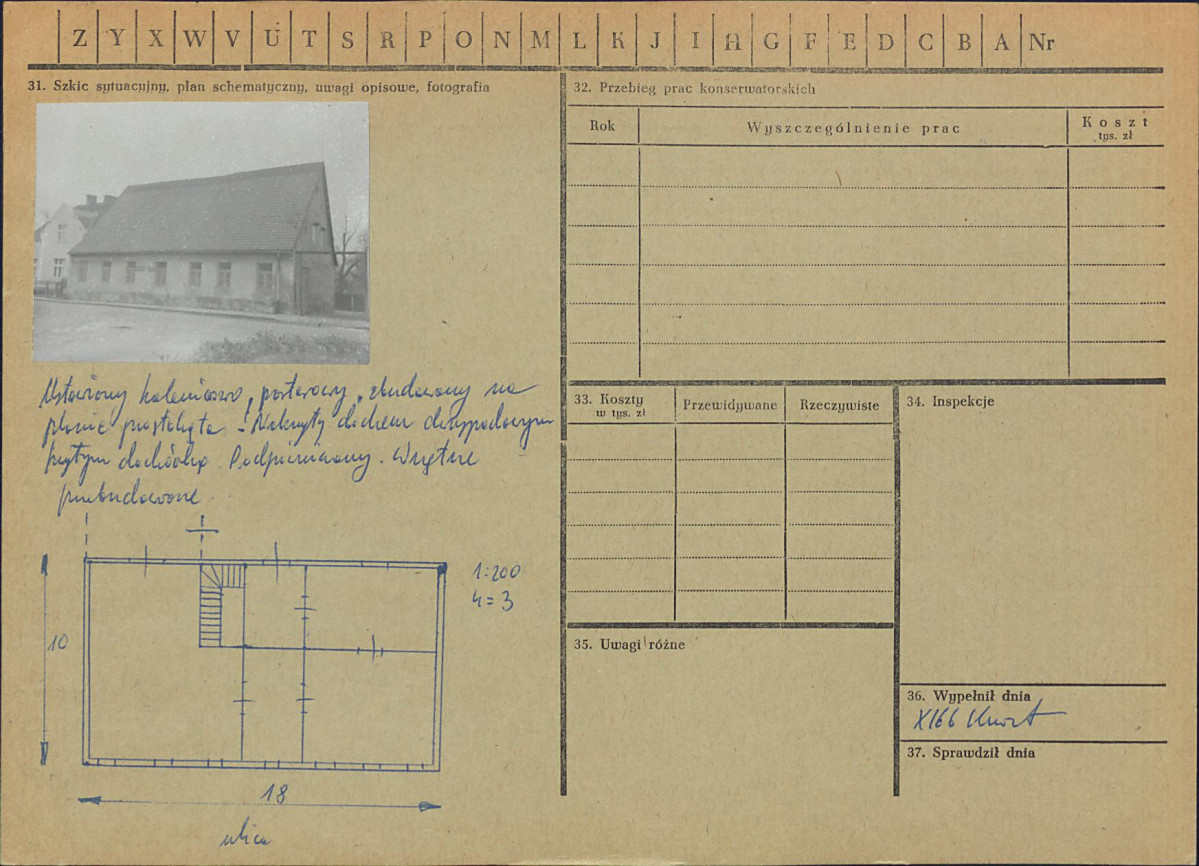 Z Y X W V U T S R P O N M L K J I H G F E D C B A Nr
31. Szkic sytuacyjny, plan schematyczny, uwagi opisowe, fotografia
Ustawiony kalenicowo, parterowy, zbudowany na
planie prostokąta. Nakryty dachem dwuspadowym
krytym dachówką. Podpiwniczony. Wnętrze
przebudowane.
1:200
h=3
10
18
ulica
32. Przebieg prac konserwatorskich
Rok Wyszczególnienie prac Koszt
tys. zł
33. Koszty
w tys. zł
Przewidywane Rzeczywiste
34. Inspekcje
35. Uwagi różne
36. Wypełnił dnia
XI66
37. Sprawdził dnia